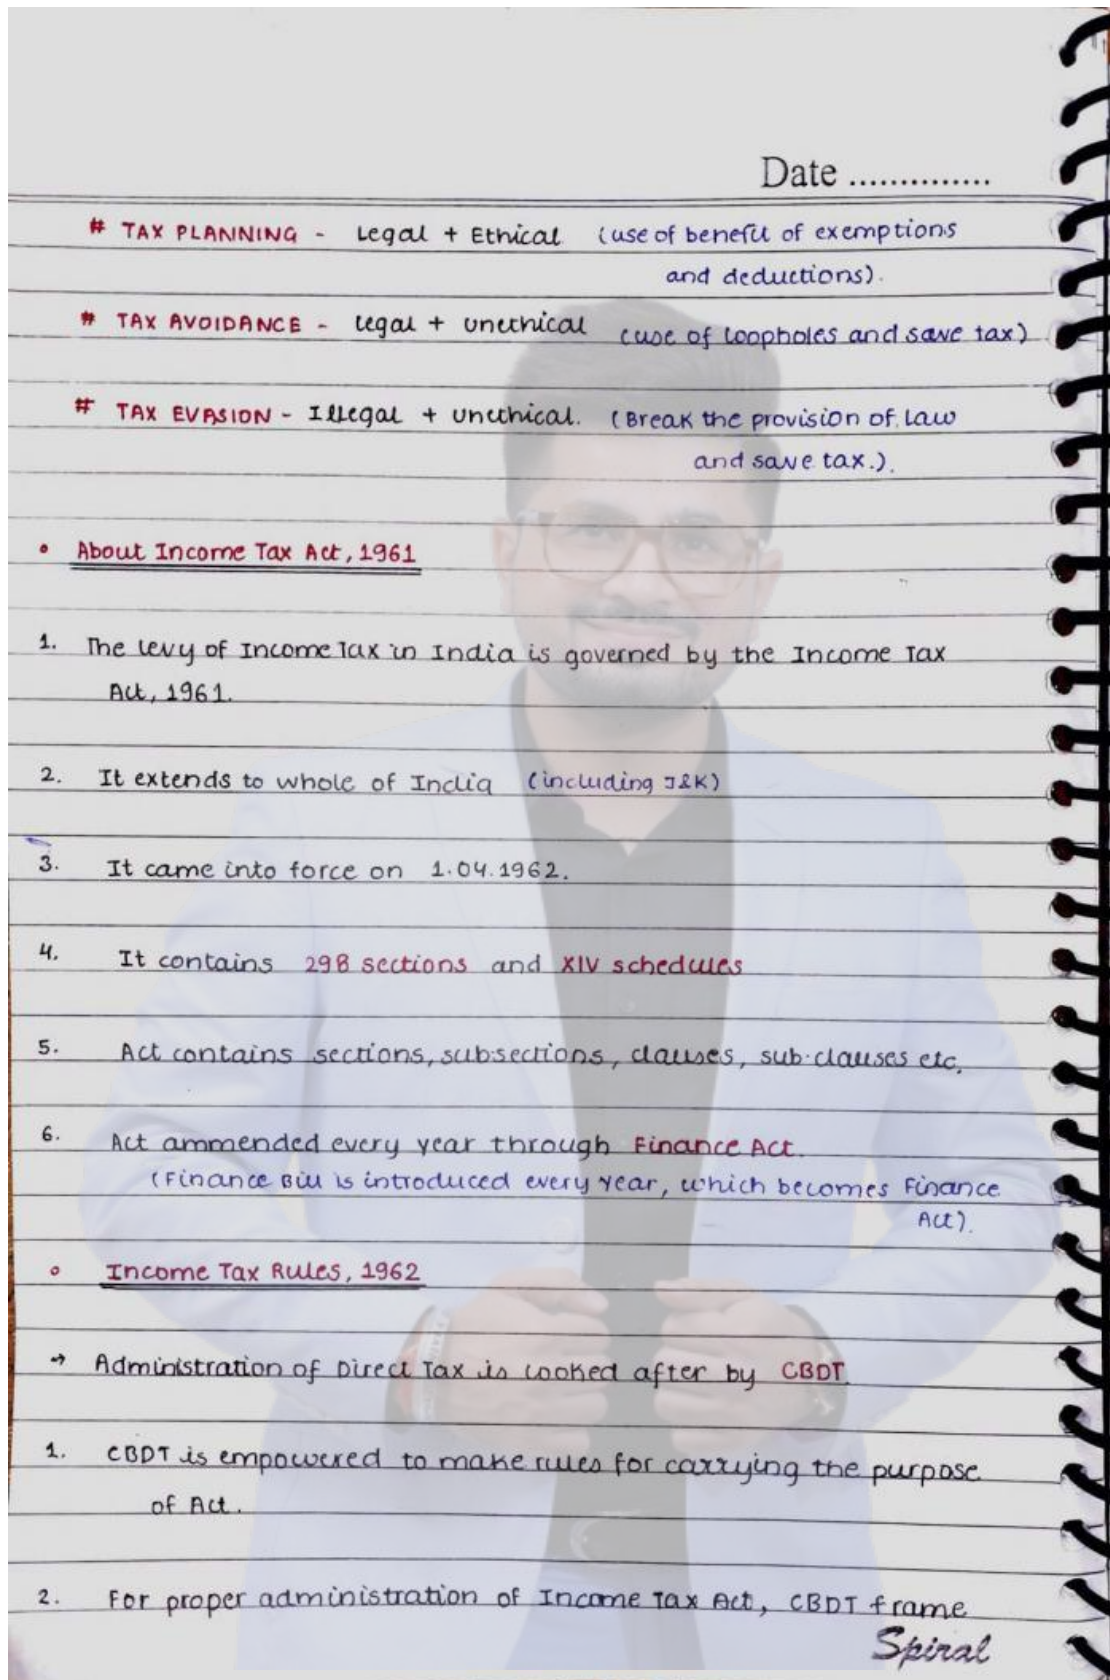 Date ..............
# TAX PLANNING - Legal + Ethical (use of benefit of exemptions
and deductions).
# TAX AVOIDANCE - Legal + unethical (use of loopholes and save tax)
# TAX EVASION - Illegal + unethical. (Break the provision of Law
and save tax.).
• About Income Tax Act, 1961
1. The levy of Income Tax in India is governed by the Income Tax
Act, 1961.
2. It extends to whole of India (including J&K)
3. It came into force on 1.04.1962.
4. It contains 298 sections and XIV schedules
5. Act contains sections, subsections, clauses, sub-clauses etc.
6. Act ammended every year through Finance Act.
(Finance Bill is introduced every year, which becomes Finance
Act).
• Income Tax Rules, 1962
→ Administration of Direct Tax is looked after by CBDT.
1. CBDT is empowered to make rules for carrying the purpose
of Act.
2. For proper administration of Income Tax Act, CBDT frame
Spiral